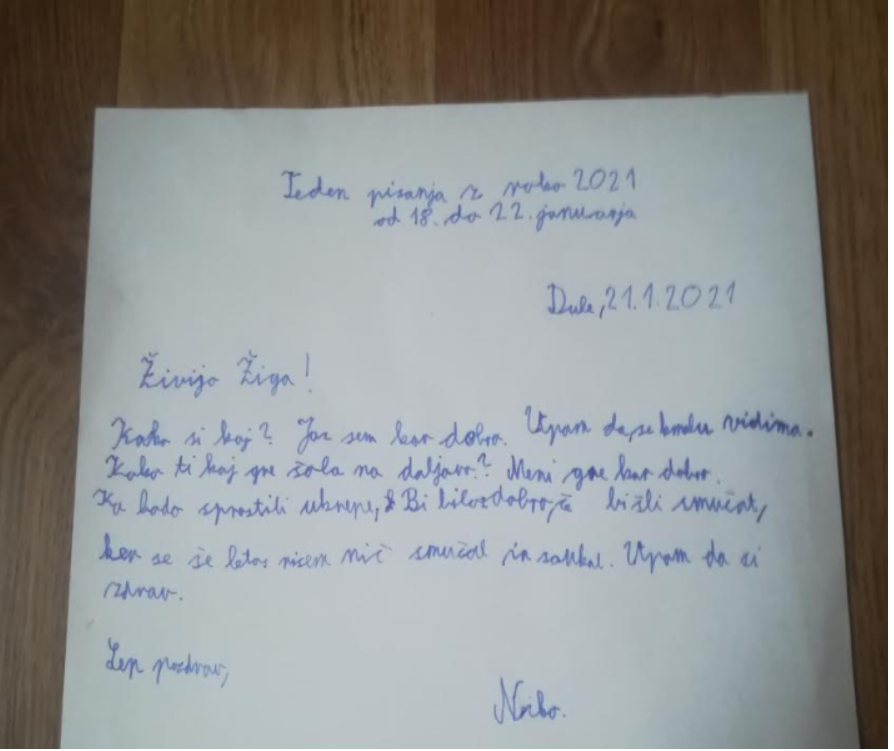 Teden pisanja z roko 2021
od 18. do 22. januarja
Dule, 21.1.2021
Živijo Žiga!
Kako si kaj? Jaz sem kar dobro. Upam da, se kmalu vidima.
Kako ti kaj gre šola na daljavo? Meni gre kar dobro.
Ko bado sprostili ukrepe, Bi bilo dobro, če bi šli smučat,
ker se še letos nisem nič smučal in sankal. Upam da si
zdrav.
Lep pozdrav,